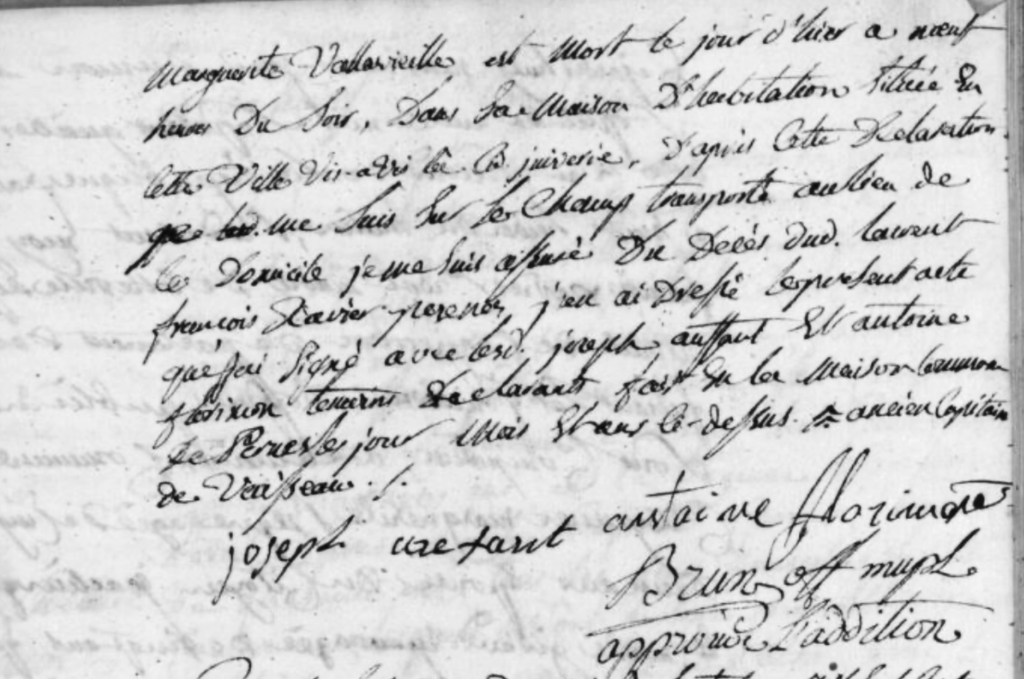 Marguerite Vallavieille est Mort le jour d'hier a neuf
heures Du Soir, Dans Sa Maison D'habitation Située En
cette Ville Vis-avis la juiverie, D'apres Cette Declaration
me Suis Sur le Champ transporté au lieu de
le Domicile je me suis assuré Du Decés dud. laurent
françois Xavier j'en ai Dressé le present acte
que j'ai Signé avec lesd. joseph auffant Et antoine
florimon temoins Declarants fait En la Maison Commune
de Pernes le jour Mois Et ans Ci-dessus. ancien Capitaine
de Vaisseau ./.
joseph antoine florimon
Brun off mupl
approuvé l'addition